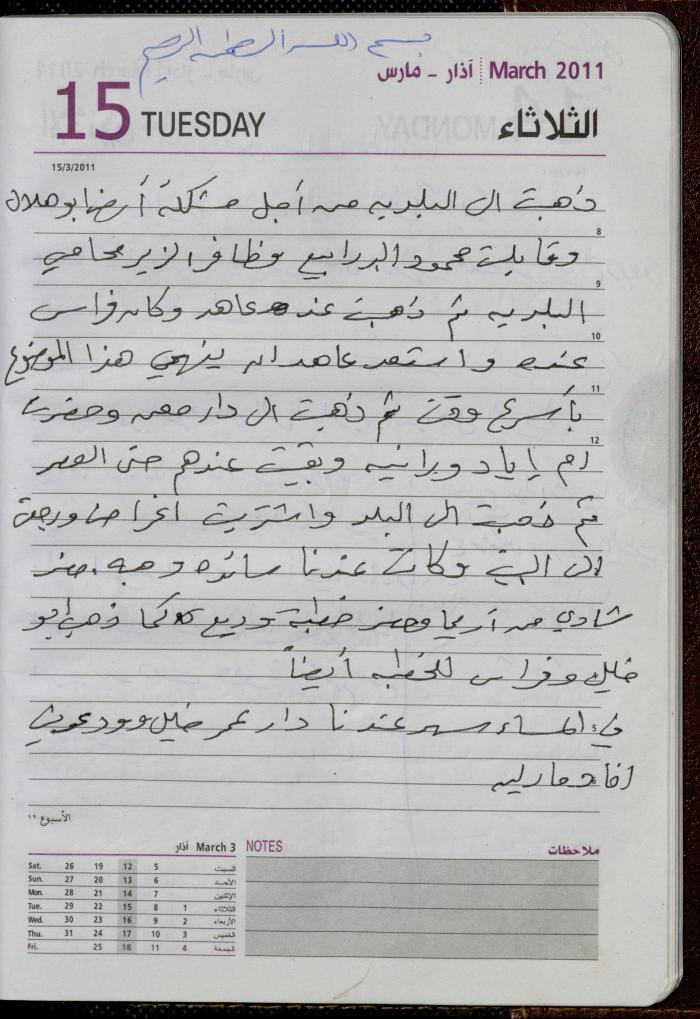 بسم الله الرحمن الرحيم
آذار - مارس March 2011
15 TUESDAY الثلاثاء
15/3/2011
ذهبت الى البلديه من أجل مشكلة أرض ابو هلال
8
وقابلت محمود البرابيع وظافر الزير محامي
9
البلديه ثم ذهبت عند عاهد وكان فراس
10
عنده واستعد عاهد ان ينهي هذا الموضوع
11
بأسرع وقت ثم ذهبت الى دار معن وحضرت
12
ام إياد ورانيه وبقيت عندهم حتى العصر
ثم ذهبت الى البلد واشتريت اغراض ورجعت
الى البيت وكانت عندنا سائده وهبه حضر
شادي من أريحا وحضر خطبة وديع كما ذهب ابو
خليل وفراس للخطبه أيضاً
في المساء سهر عندنا دار عمر خليل
الأسبوع ١١
March 3 آذار
Sat. 26 19 12 5 السبت
Sun. 27 20 13 6 الأحد
Mon. 28 21 14 7 الإثنين
Tue. 29 22 15 8 1 الثلاثاء
Wed. 30 23 16 9 2 الأربعاء
Thu. 31 24 17 10 3 الخميس
Fri. 25 18 11 4 الجمعة
NOTES ملاحظات